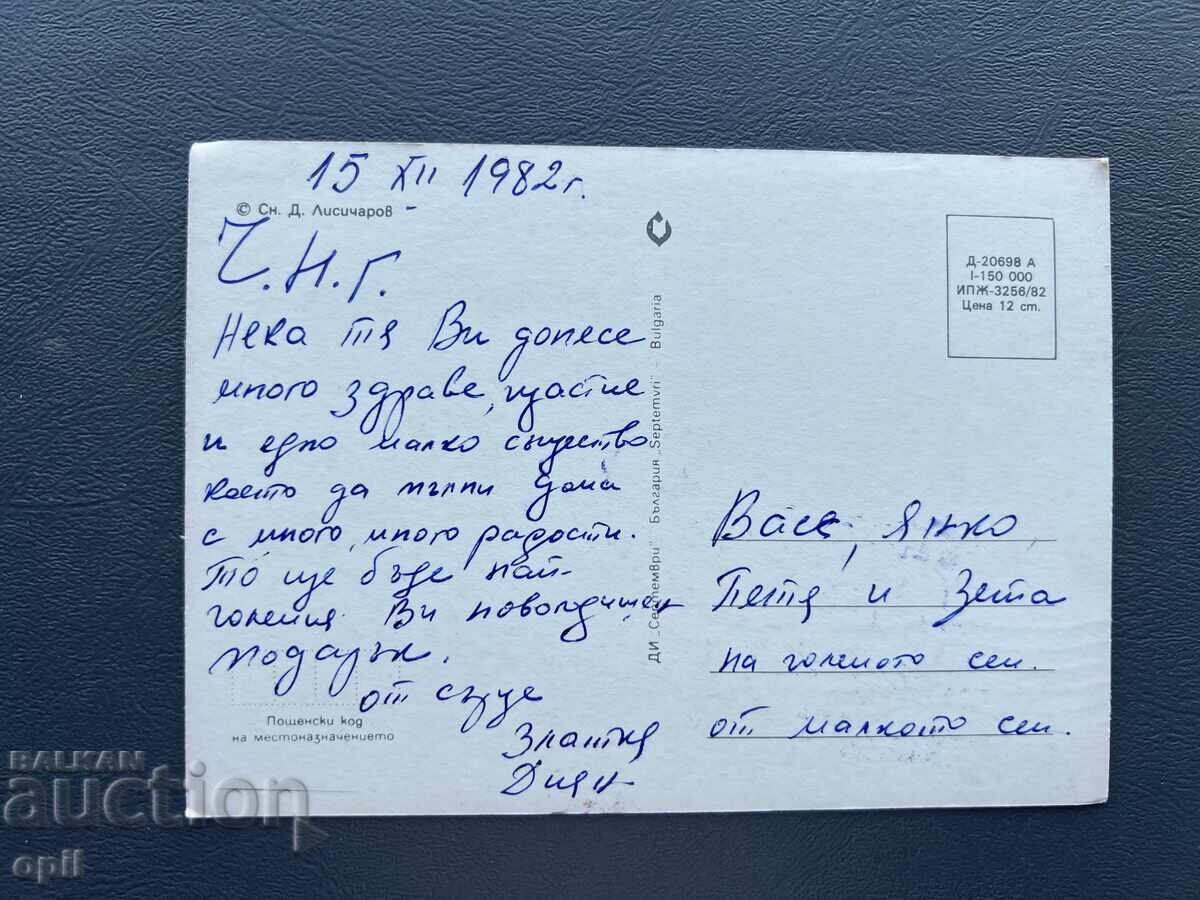 15 XII 1982 г.
© Сн. Д. Лисичаров
Ч.Н.Г.
Нека тя Ви донесе
много здраве, щастие
и едно малко същество
което да пълни дома
с много, много радости.
То ще бъде най-
големия Ви новогодишен
подарък.
от сърце
Златка
Диян
Пощенски код
на местоназначението
ДИ „Септември" България „Septemvri" - Bulgaria
Д-20698 А
I-150 000
ИПЖ-3256/82
Цена 12 ст.
Васе, Янко,
Петя и Зета
на голямото сем.
от малкото сем.
BALKAN
auction
opil